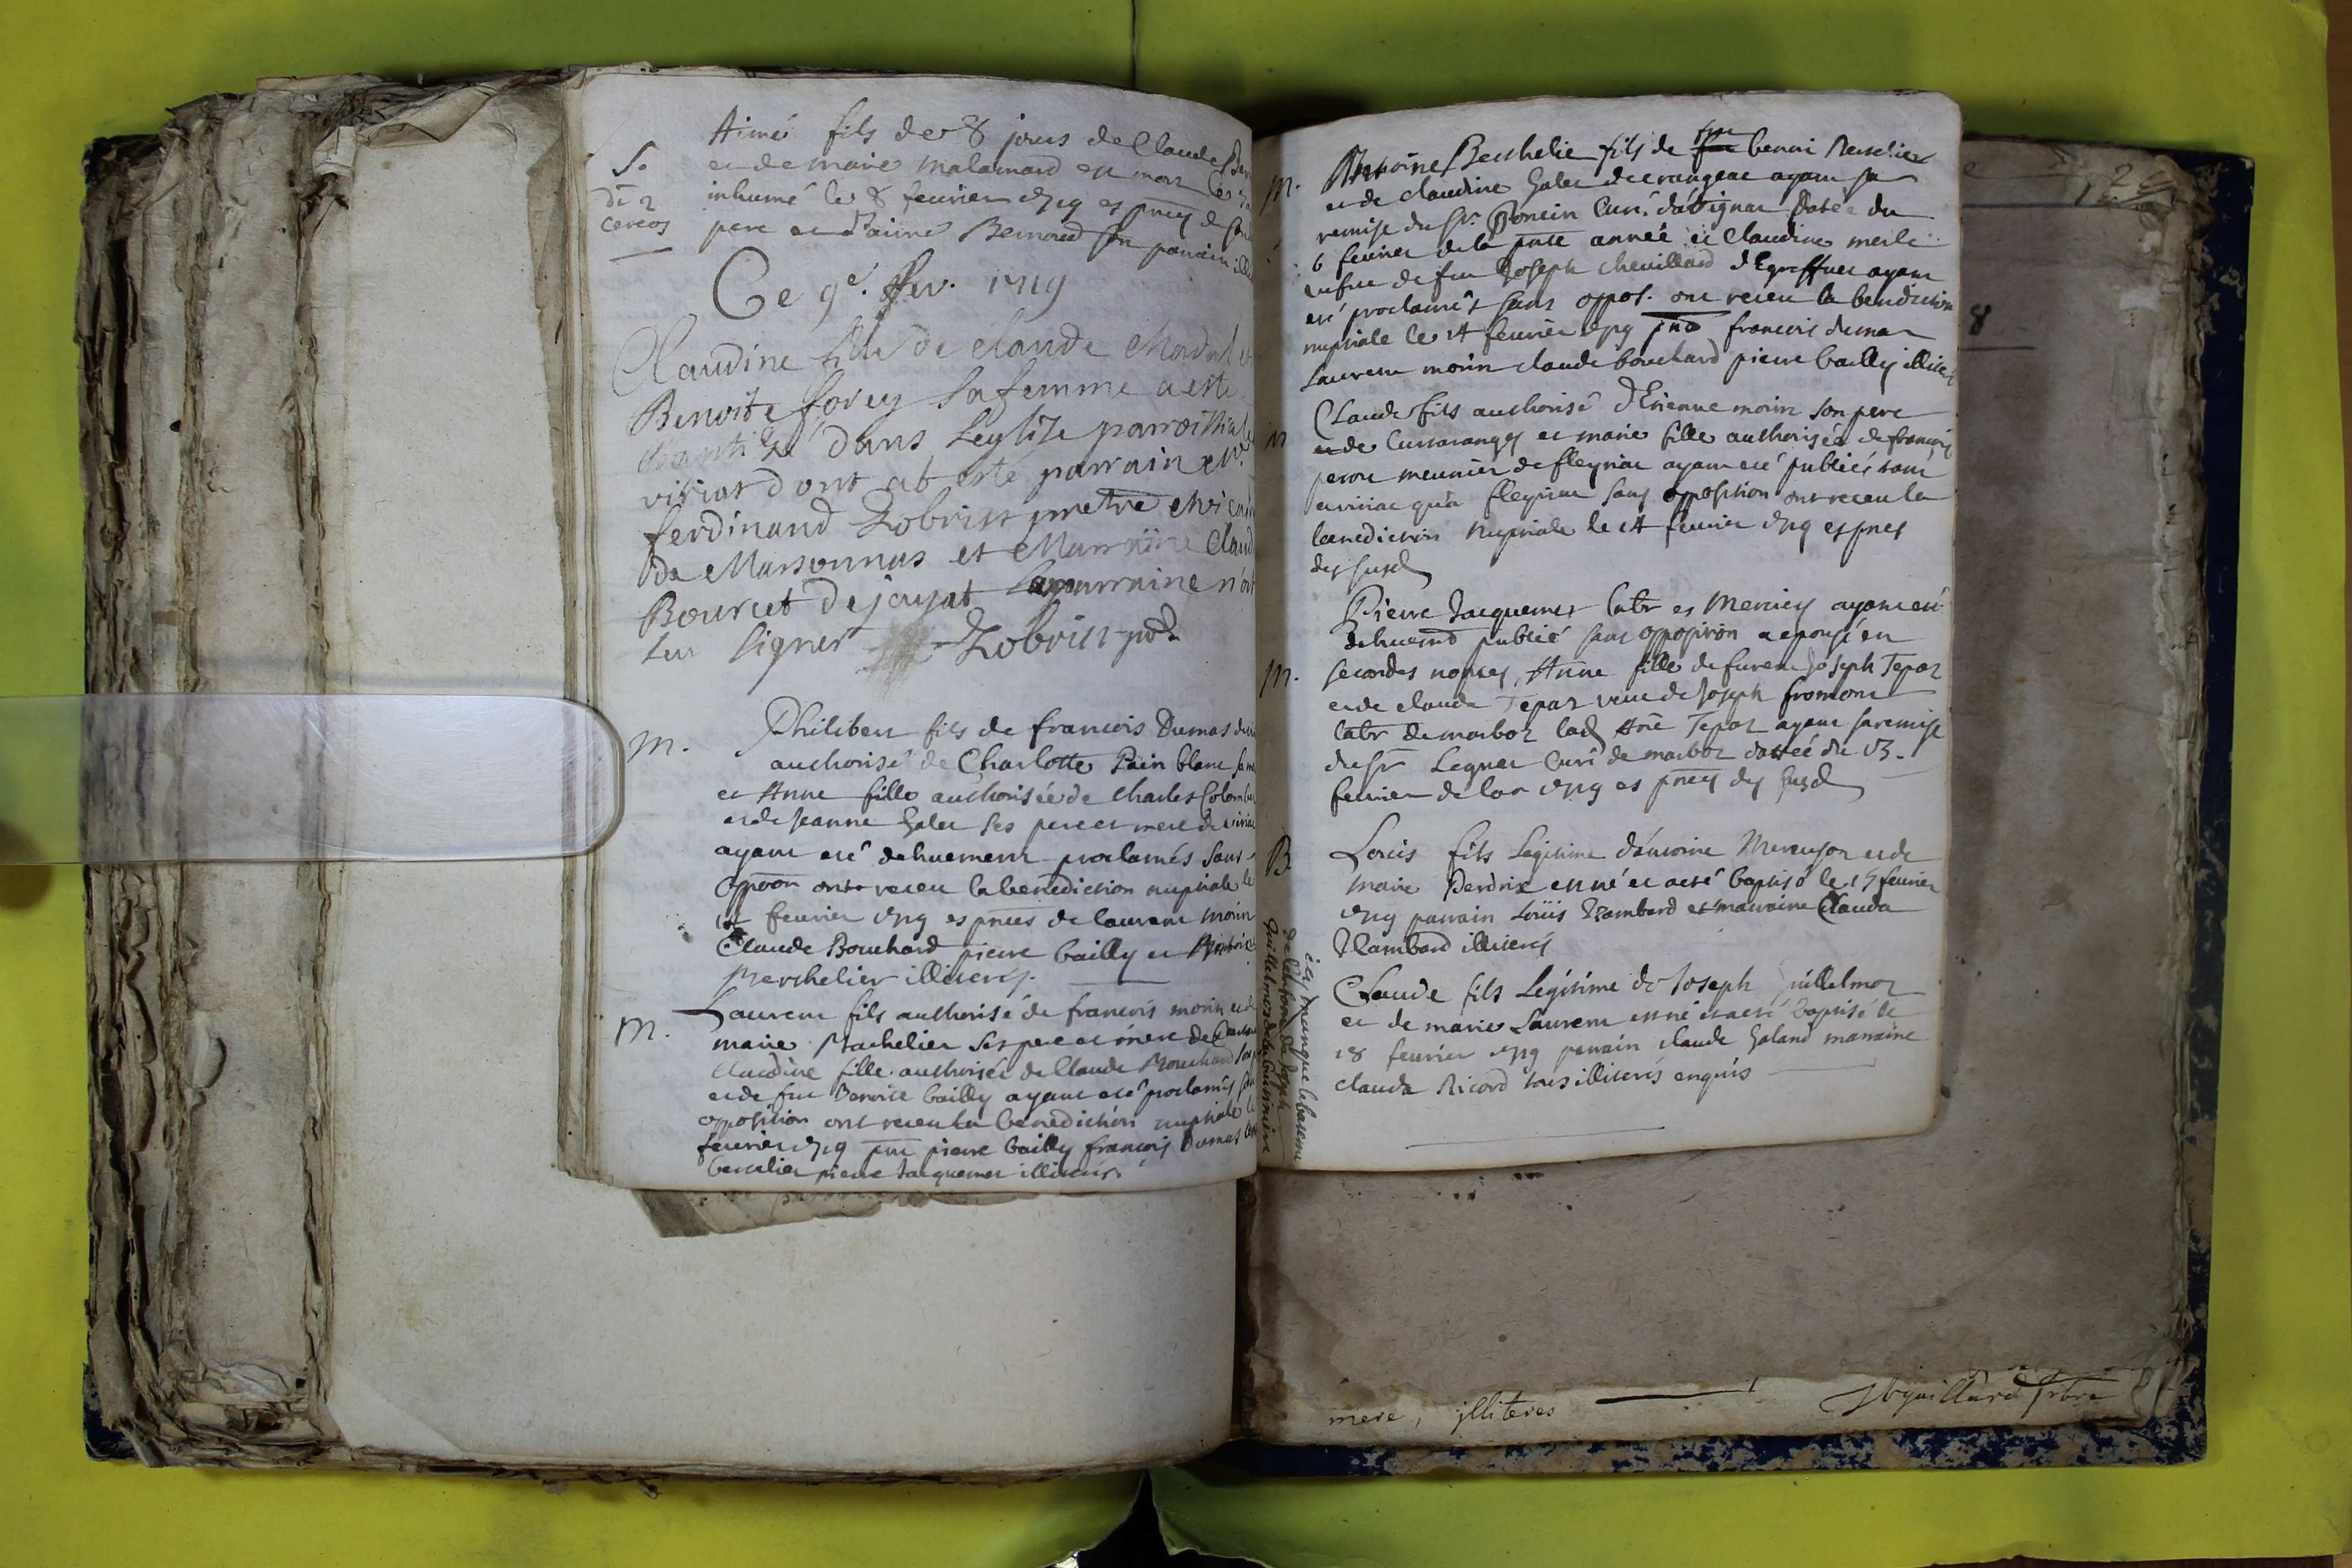 Aimé fils de 8 jours de Claude
S. et de marie malamard est mort
inhumé le 8 feuvrier 1719 es pnces de
cereos pere et d'aimé Bernard son parrain
Ce 9e. fev. 1719
Claudine fille de claude
Benoite forey sa femme a esté
baptizé dans Leglise parroissiale
viriat dont at esté parrain
ferdinand Zobrist pretre
de Marsonnas et Marraine Claud
Bourcet de jayat La marraine n'ont
seu signer Zobrist
M. Philibert fils de francois Dumas
authorisé de Charlotte Pain blanc
et Anne fille authorisée de Charles Colomb
et de Jeanne Galet ses pere et mere de viriat
ayant eté dehuement proclamés sans
oppoon ont receu la benediction nuptiale le
14 feuvrier 1719 es pnces de laurent morin
Claude Bouchard pierre bailly et
Berthelier illiterés.
M. Laurent fils authorisé de francois morin et de
marie Bachelier ses pere et mere de
Claudine fille authorisée de Claude Bouchard
et de fue Benoite bailly ayant eté proclamés
opposition ont receu la benediction nuptiale
feuvrier 1719 pnt pierre bailly francois Dumas
bertelier pierre Jacquemet illiterés.
M. Antoine Berthelie fils de feu benoi Berselier
et de claudine Galet de crangeac ayant sa
remise du Sr. Poncin Curé d'attignat Datée du
6 feuvrier de la pnte année et Claudine merle
vefue de feu Joseph chevillard
eté proclamés sans oppos. ont receu la benediction
nuptiale le 14 feuvrier 1719 francois dumas
Laurent morin claude bouchard pierre bailly
M Claude fils authorisé d'Etienne morin son pere
et de et marie fille authorisée de francois
perou meunier de fleyriac ayant eté publiés tant
a viriac qu'a fleyriac sans opposition ont receu la
benediction Nuptiale le 14 feuvrier 1719 es pnces
des susd
Pierre Jacquemet labr es Merciey ayant eté
dehuement publié sans opposition a epousé en
M. secondes nopces, Anne fille de Joseph Tepaz
et de claude Tepaz veuve de Joseph fromont
labr de marboz lad Anne Tepaz ayant sa remise
du Sr Leguat Curé de marboz dattée du 13.
feuvrier de l'an 1719 es pnces des susd
B Loüis fils Legitime d'antoine Mercusot et de
marie Perdrix est né et a eté baptisé le 15 feuvrier
1719 parrain Loüis Rambard et marraine Clauda
Rambard illiterés
Claude fils Legitime de Joseph Guillelmoz
et de marie Laurent est né et a eté baptisé le
18 feuvrier 1719 parrain claude Galand marraine
clauda Ricord tous illiterés enquis
icy manque le batême
de Joseph
Guillelmoz de la Cuisiniere
mere, illiteres